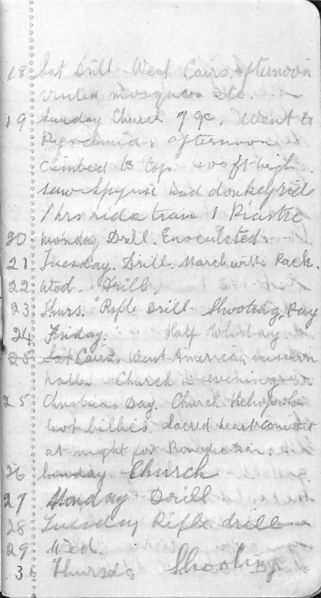 18 Sat Drill. West Cairo, afternoon
visited mosques etc.
19 Sunday Church 79c. Went to
Pyramids afternoon
climbed to top 400 ft high
saw Spynx had donkey ride
1 hrs ride tram 1 Piastre
20 Monday Drill. Enoculated.
21 Tuesday. Drill. March with Pack.
22 Wed. Drill
23 Thurs. Rifle Drill Shooting. Pay
24 Friday. Half Holiday.
25 Sat Cairo. Went American mission
Church evening
25 Christmas Day. Church
lost billies. Sacred heart Convent
at night for Benediction.
26 Sunday Church
27 Monday Drill
28 Tuesday Rifle drill
29 Wed.
3 Thursd. Shooting.